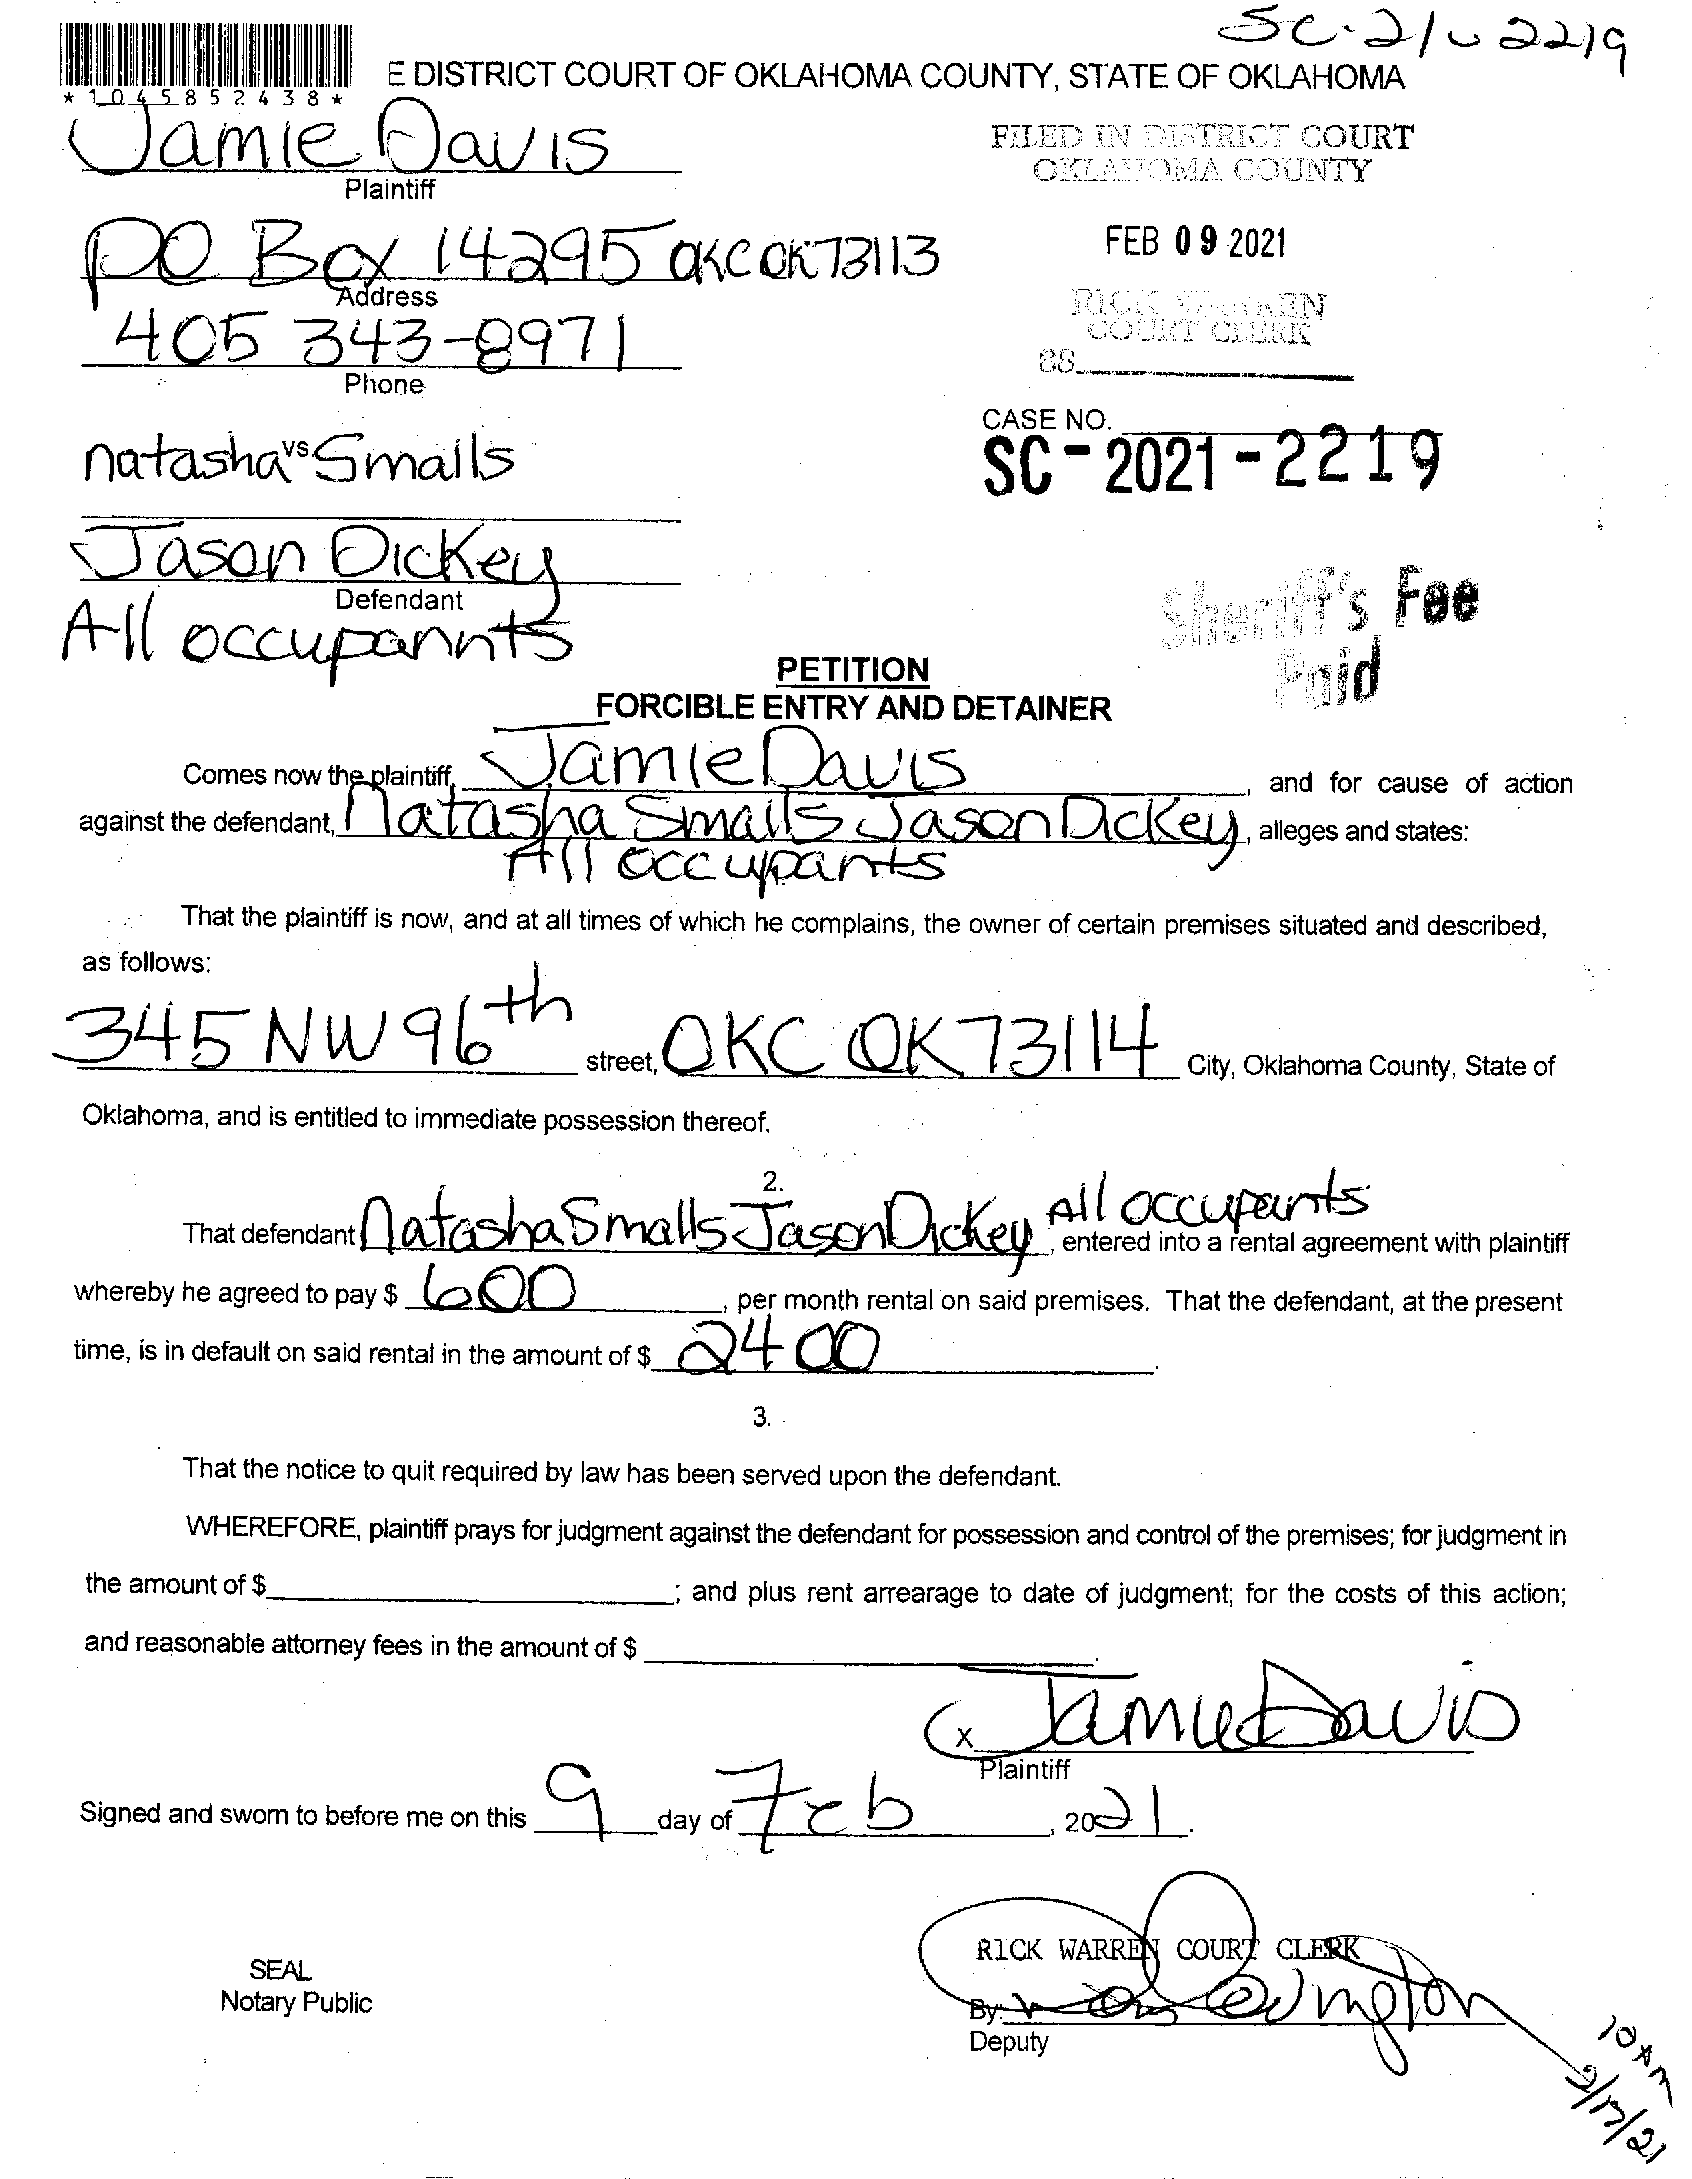 SC-21-2219
E DISTRICT COURT OF OKLAHOMA COUNTY, STATE OF OKLAHOMA
*1045852438*
Jamie Davis
Plaintiff
FILED IN DISTRICT COURT
OKLAHOMA COUNTY
PO Box 14295 OKC OK 73113
Address
FEB 09 2021
405 343-8971
Phone
RICK WARREN
COURT CLERK
88
CASE NO.
SC-2021-2219
natasha vs Smalls
Jason Dickey
Defendant
All occupannts
Sheriff's Fee
Paid
PETITION
FORCIBLE ENTRY AND DETAINER
Comes now the plaintiff, Jamie Davis, and for cause of action
against the defendant, Natasha Smalls Jason Dickey, alleges and states:
All occupants
That the plaintiff is now, and at all times of which he complains, the owner of certain premises situated and described,
as follows:
345 NW 96th street, OKC OK 73114 City, Oklahoma County, State of
Oklahoma, and is entitled to immediate possession thereof.
2.
That defendant Natasha Smalls Jason Dickey All occupants, entered into a rental agreement with plaintiff
whereby he agreed to pay $ 600, per month rental on said premises. That the defendant, at the present
time, is in default on said rental in the amount of $ 2400.
3.
That the notice to quit required by law has been served upon the defendant.
WHEREFORE, plaintiff prays for judgment against the defendant for possession and control of the premises; for judgment in
the amount of $ ; and plus rent arrearage to date of judgment; for the costs of this action;
and reasonable attorney fees in the amount of $ .
x Jamie Davis
Plaintiff
Signed and sworn to before me on this 9 day of Feb, 2021.
RICK WARREN COURT CLERK
SEAL
Notary Public
By:
Deputy
10 AM
2/17/21